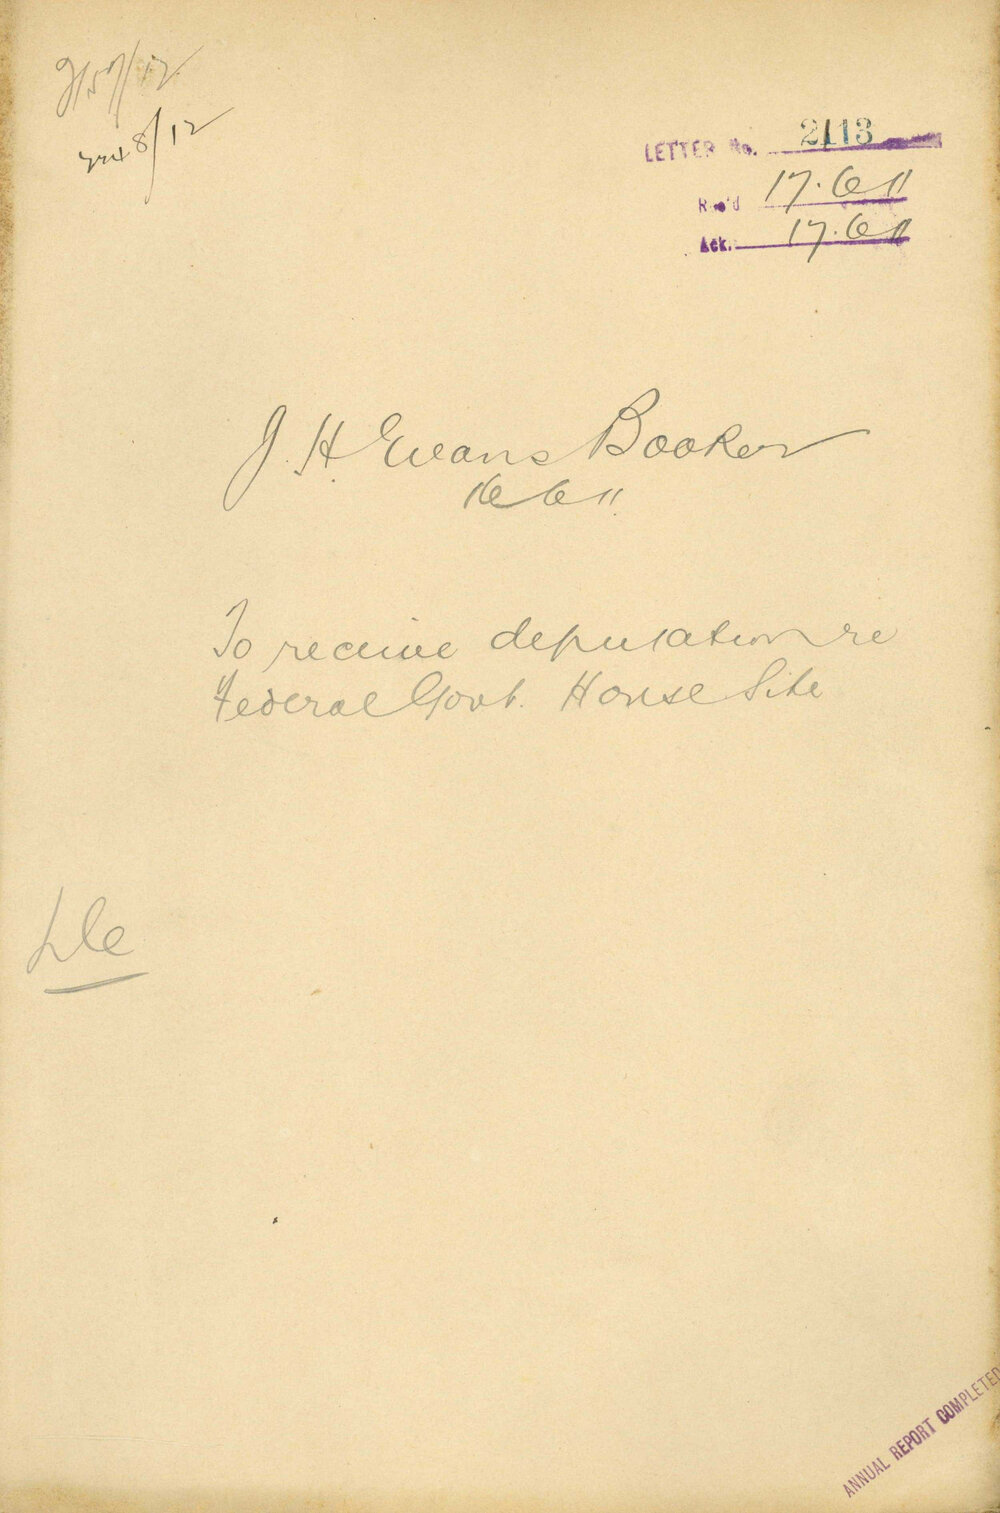 LETTER No. 2113
Rec'd 17.6 11
Ack. 17.6 11
8/12
J. H. Evans Booker
16 6 11
To receive deputation re
Federal Govt. House Site
ANNUAL REPORT COMPLETED